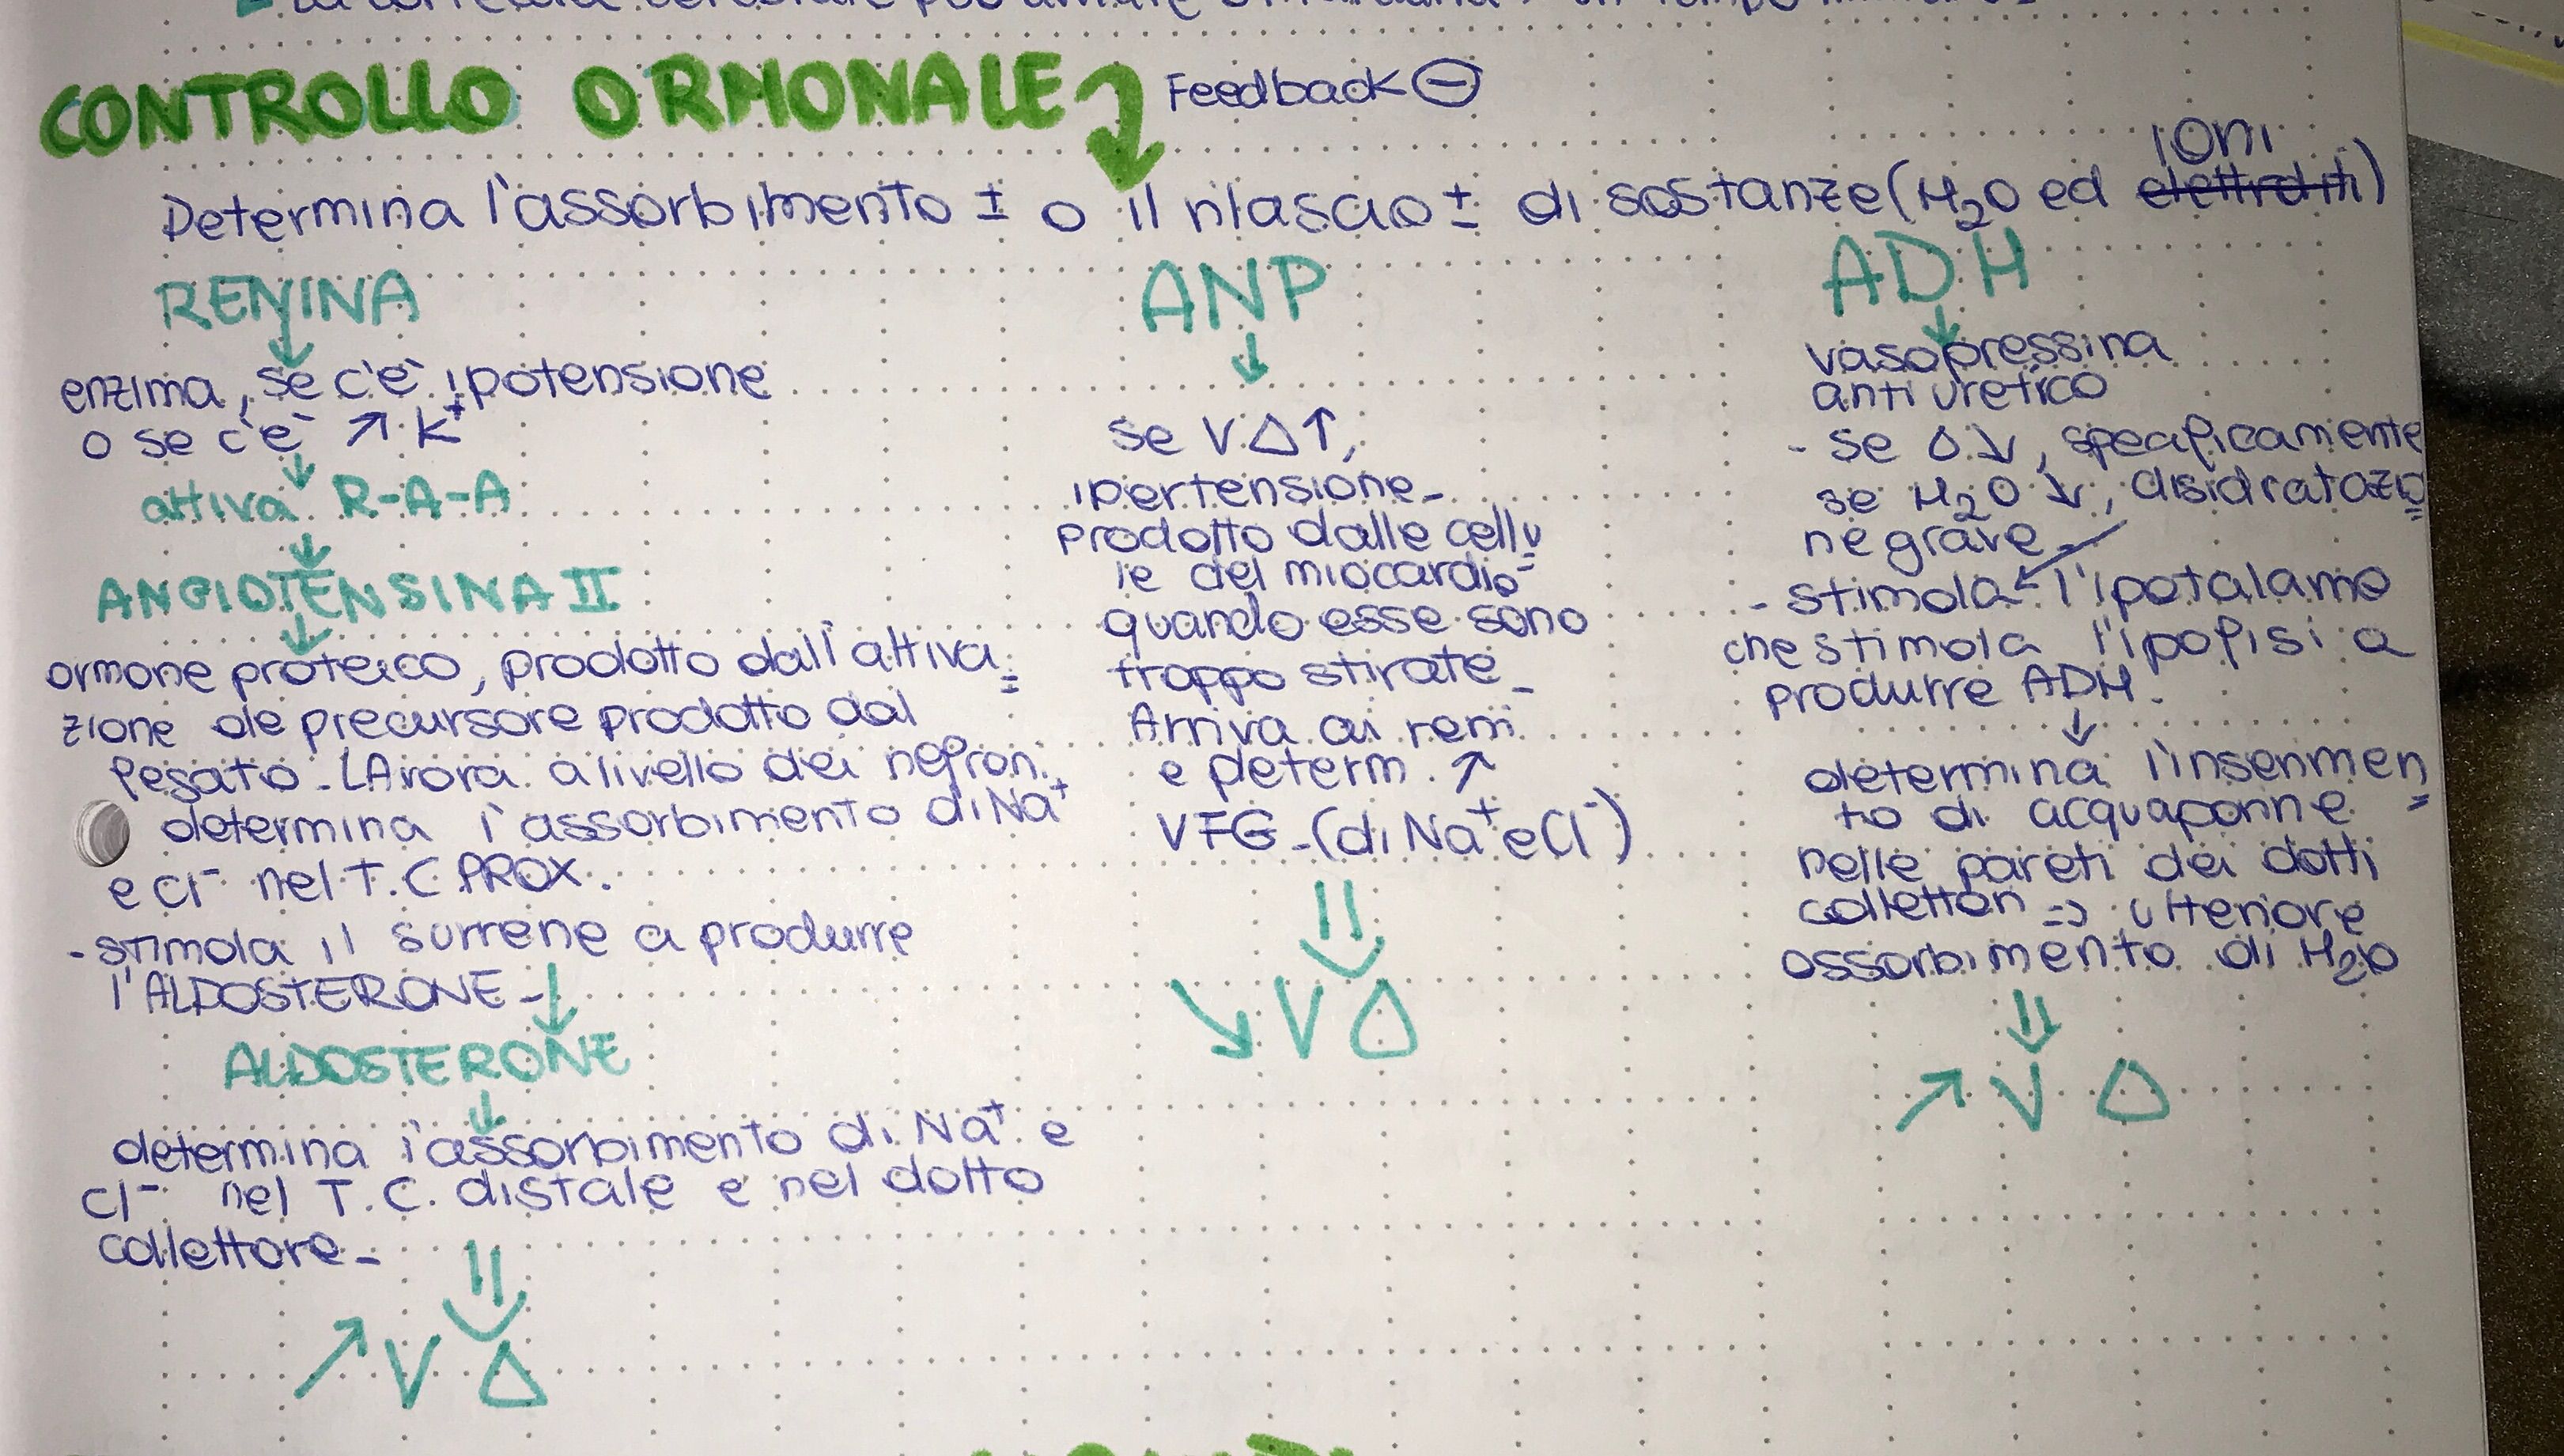 CONTROLLO ORMONALE Feedback ⊖
ioni
Determina l'assorbimento ± o il rilascio ± di sostanze (H₂O ed elettroliti)
RENINA
enzima, se c'è ipotensione
o se c'è ↗ K⁺
↓
attiva R-A-A
↓
ANGIOTENSINA II
↓
ormone proteico, prodotto dall'attiva=
zione de precursore prodotto dal
fegato. LAvora a livello dei nefron.
determina l'assorbimento di Na⁺
e Cl⁻ nel T.C PROX.
- stimola il surrene a produrre
l'ALDOSTERONE -
↓
ALDOSTERONE
↓
determina l'assorbimento di Na⁺ e
Cl⁻ nel T.C. distale e nel dotto
collettore -
⇓
↗ V Δ
ANP
↓
se V Δ ↑,
ipertensione -
Prodotto dalle cellu=
le del miocardio
quando esse sono
troppo stirate -
Arriva ai reni
e determ. ↗
VFG - (di Na⁺ e Cl⁻)
⇓
↘ V Δ
ADH
↓
vasopressina
antiuretico
- se Δ ↘, specificamente
se H₂O ↘, disidratazio=
ne grave -
- stimola l'ipotalamo
che stimola l'ipofisi a
produrre ADH.
↓
determina l'inserimen=
to di acquaporine
nelle pareti dei dotti
collettori => ulteriore
assorbimento di H₂O
⇓
↗ V Δ